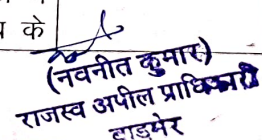 के
(नवनीत कुमार)
राजस्व अपील प्राधिकारी
बाड़मेर